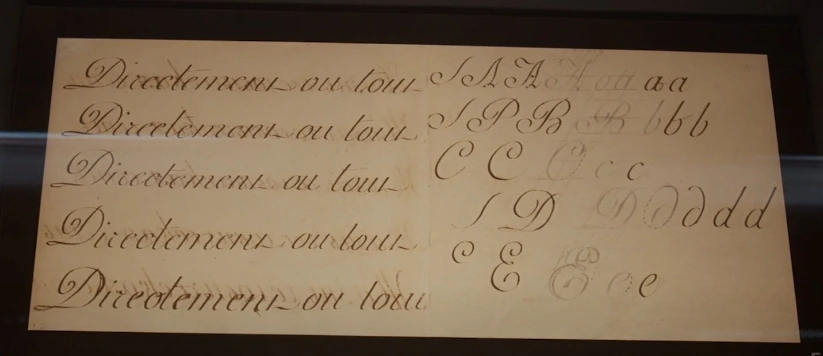 Directement ou tout J A A A a a a a
Directement ou tout J P B B b b b
Directement ou tout C C C c c
Directement ou tout J D D d d d d
Directement ou tout C E E e e